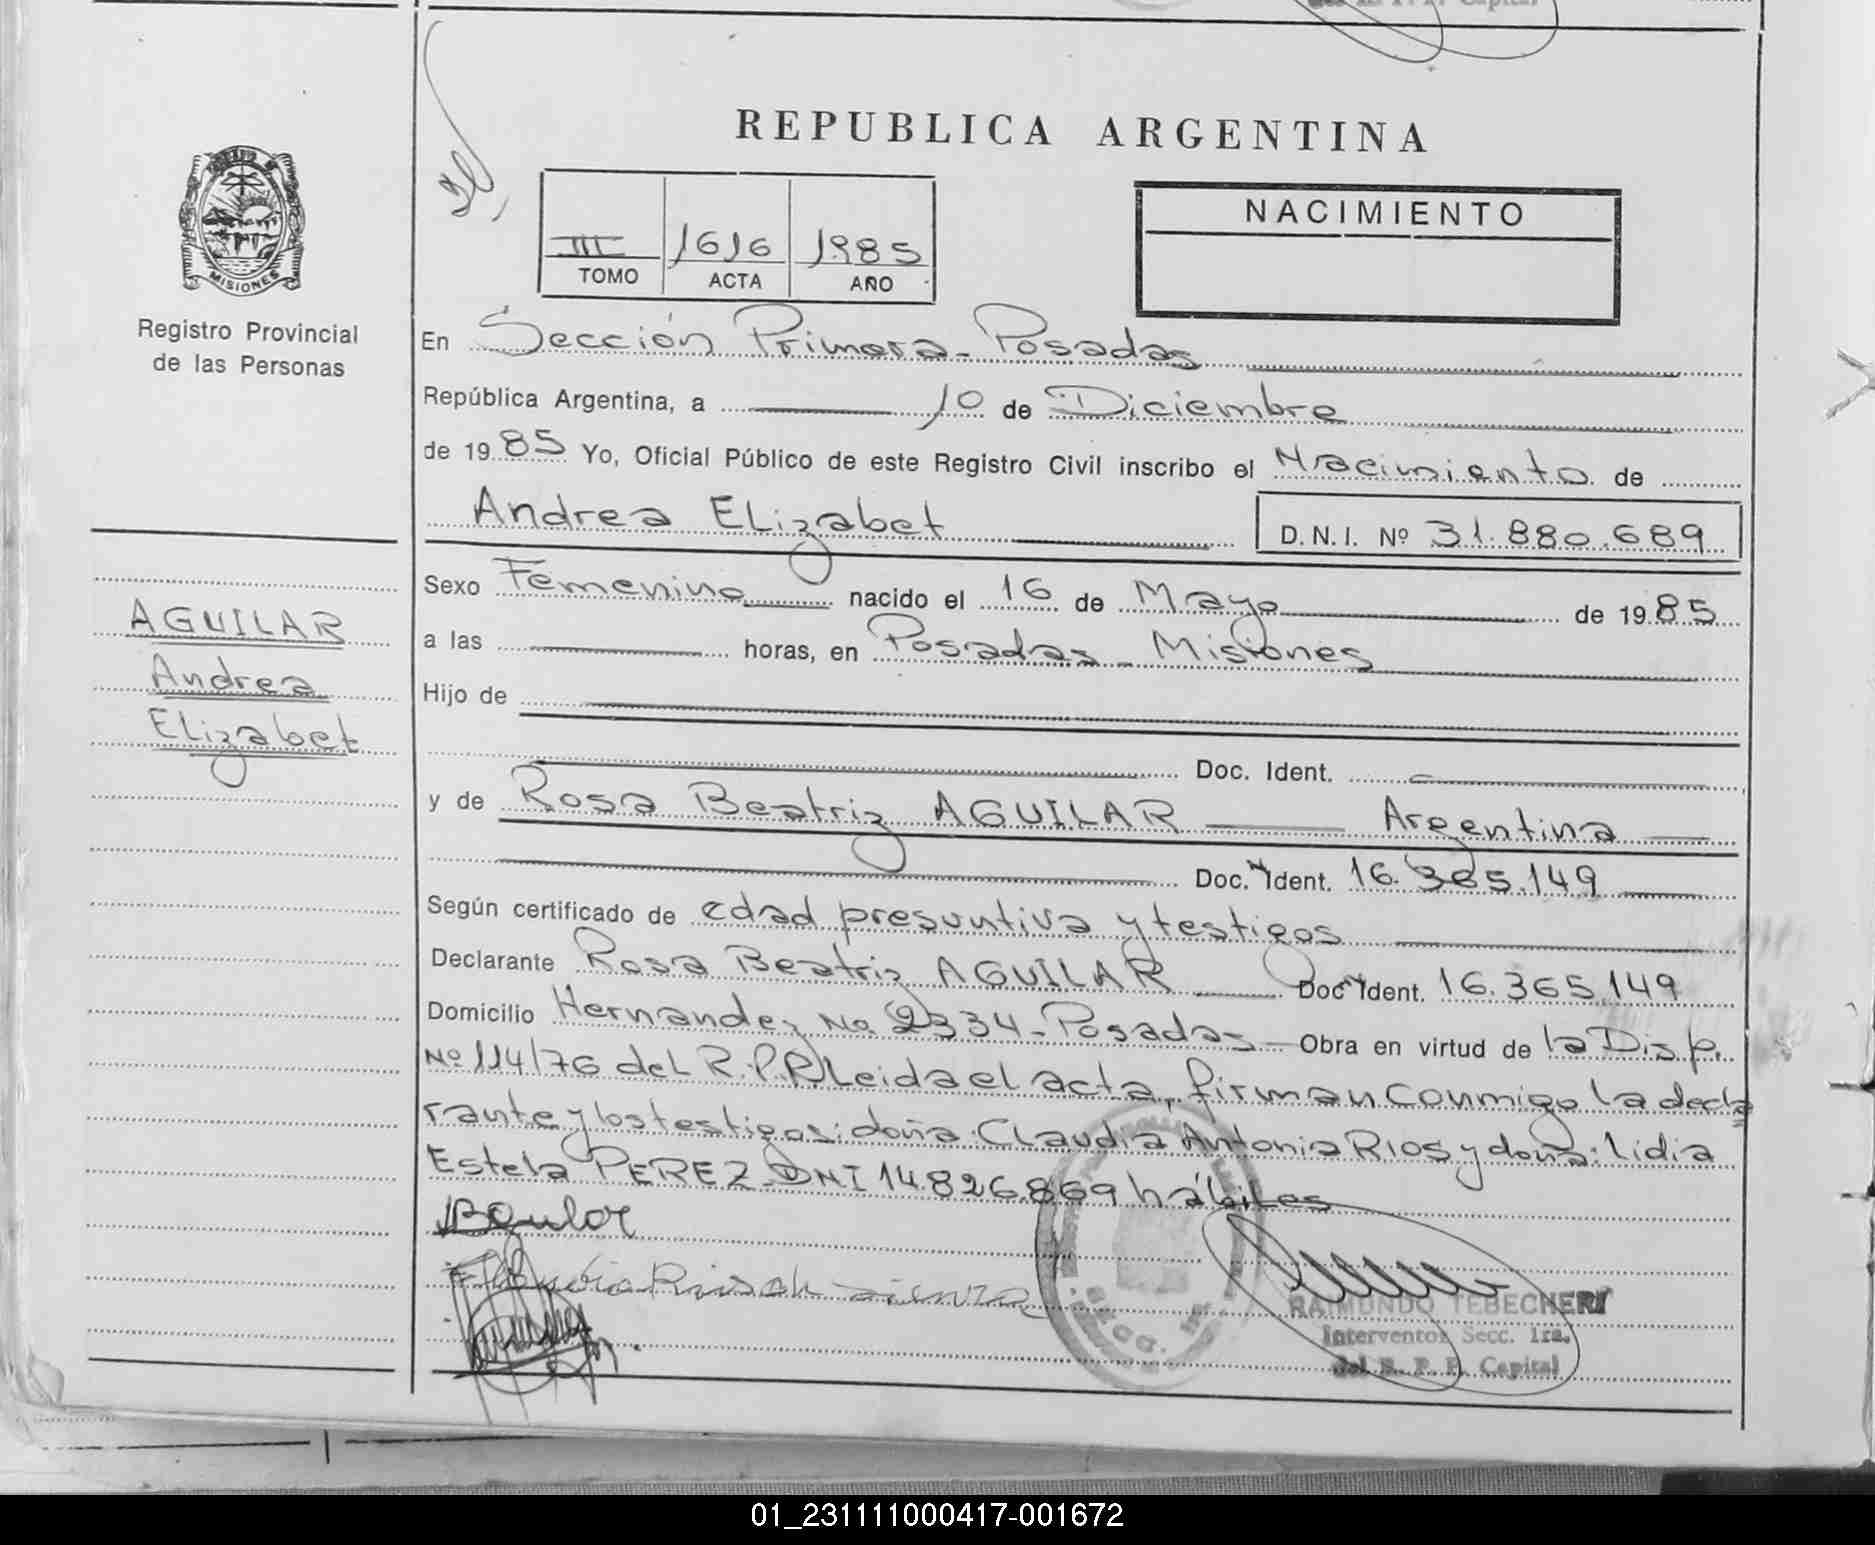 REPUBLICA ARGENTINA
MISIONES
Registro Provincial
de las Personas
III 1616 1985
TOMO ACTA AÑO
NACIMIENTO
En Sección Primera - Posadas
República Argentina, a 10 de Diciembre
de 1985 Yo, Oficial Público de este Registro Civil inscribo el Nacimiento de
Andrea ELizabet D.N.I. Nº 31.880.689
Sexo Femenino nacido el 16 de Mayo de 1985
a las horas, en Posadas - Misiones
Hijo de
Doc. Ident.
y de Rosa Beatriz AGUILAR Argentina
Doc. Ident. 16.365.149
Según certificado de edad presuntiva y testigos
Declarante Rosa Beatriz AGUILAR Doc. Ident. 16.365.149
Domicilio Hernandez No. 2334 - Posadas - Obra en virtud de la Disp.
Nº 114/76 del R.P.P. Leida el acta, firman conmigo la decla
rante y los testigos: doña: Claudia Antonia RIOS y doña: Lidia
Estela PEREZ DNI 14826.869 hábiles
AGUILAR
Andrea
Elizabet
RAIMUNDO TEBECHERI
Interventor Secc. 1ra.
del R. P. P. Capital
01_231111000417-001672